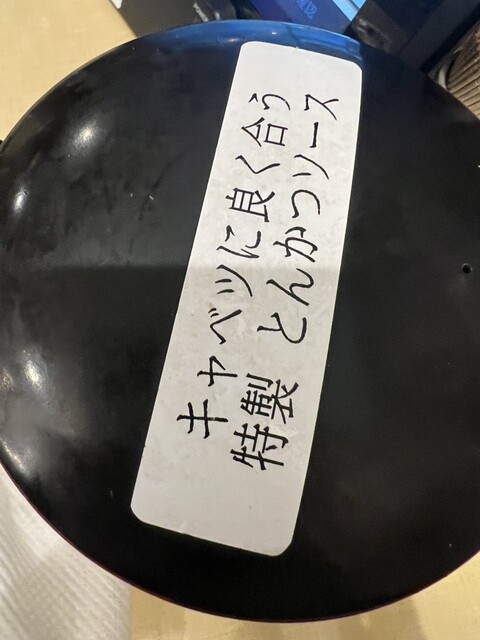 キャベツに良く合う
特製 とんかつソース